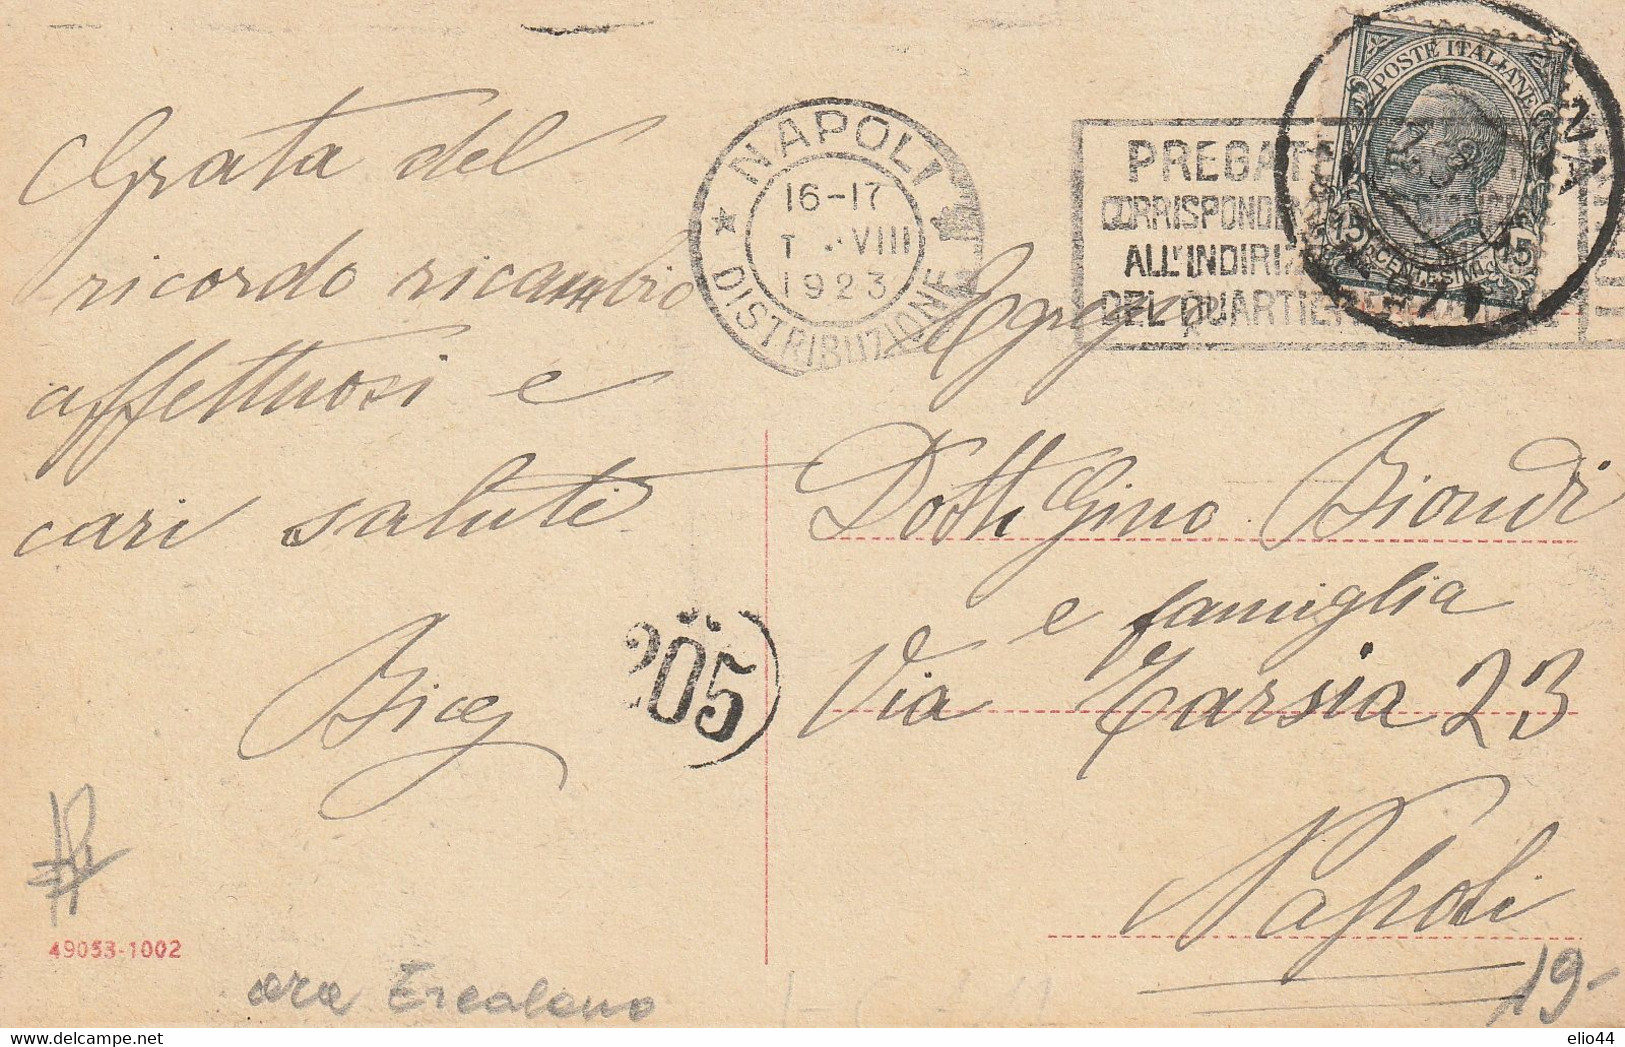 Grata del
ricordo ricambio
affettuosi e
cari saluti
NAPOLI
16-17
VIII
1923
DISTRIBUZIONE
POSTE ITALIANE
15 CENTESIMI 15
PREGATE
ALL'INDIRIZ
DEL QUARTIERE
Dott Gino Biondi
e famiglia
Via Tarsia 23
Napoli
205
49053-1002
ora Ercolano
19-
elio44